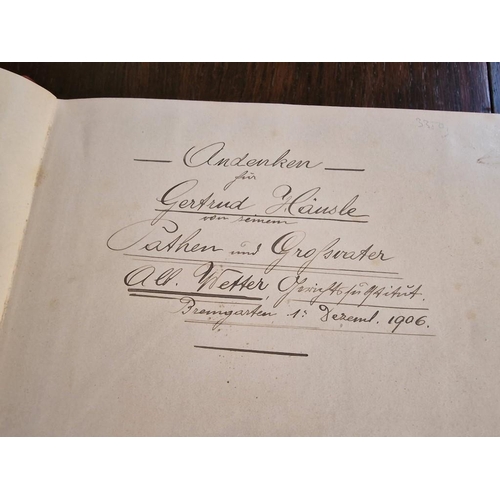 — Andenken —
für
Gertrud Häusle
von seinem
Pathen und Großvater
Alb. Wetter, Gerichtssubstitut.
Bremgarten 1: Dezemb. 1906.